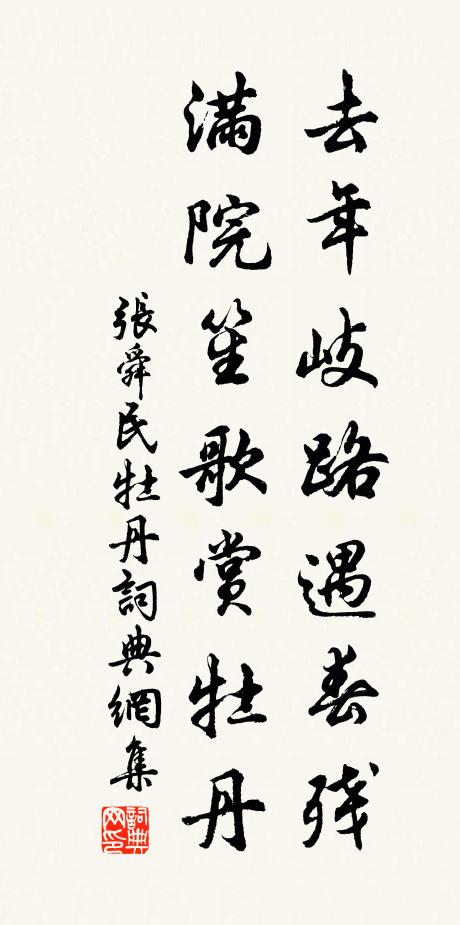 去年岐路遇春残
满院笙歌赏牡丹
張舜民牡丹詞典網集
詞典网印